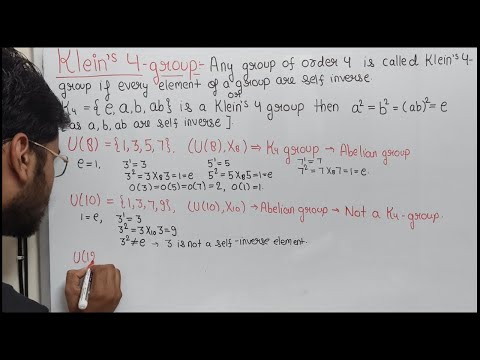 Klein's 4-group:- Any group of order 4 is called Klein's 4-
group if every element of a group are self inverse.
or
K₄ = {e, a, b, ab} is a Klein's 4 group then a² = b² = (ab)² = e
as a, b, ab are self inverse ].
U(8) = {1, 3, 5, 7}. (U(8), X₈) ⇒ K₄ group → Abelian group
e = 1. 3¹ = 3 5¹ = 5 7¹ = 7
3² = 3 X₈ 3 = 1 = e 5² = 5 X₈ 5 = 1 = e 7² = 7 X₈ 7 = 1 = e.
O(3) = O(5) = O(7) = 2, O(1) = 1.
U(10) = {1, 3, 7, 9}, (U(10), X₁₀) → Abelian group → Not a K₄-group.
1 = e, 3¹ = 3
3² = 3 X₁₀ 3 = 9
3² ≠ e → 3 is not a self-inverse element.
U(1